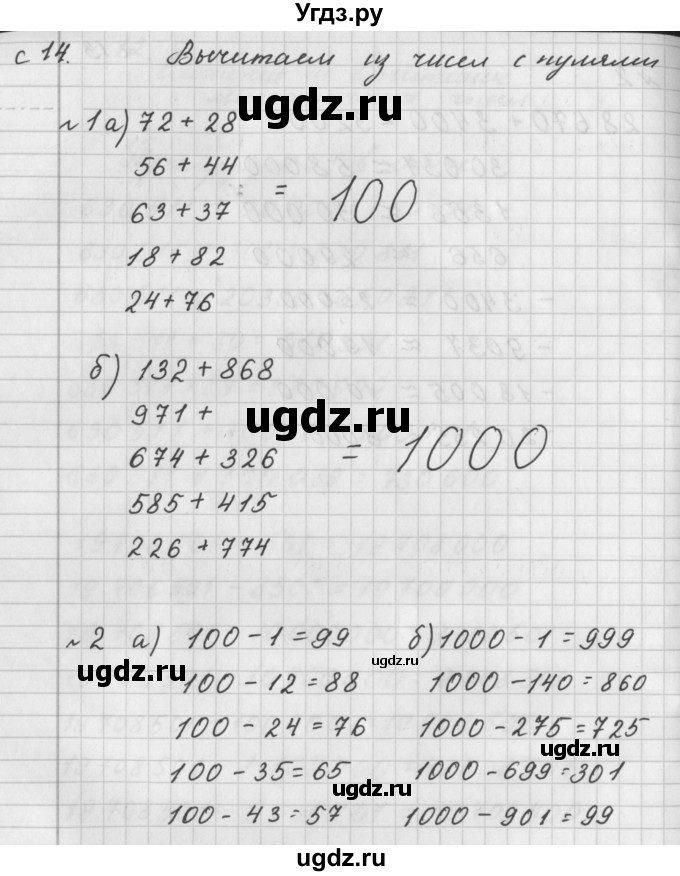 Угдз.ру
с 14. Вычитаем из чисел с нулями
№1 а) 72 + 28
ugdz.ru
56 + 44
63 + 37 = 100
18 + 82
24 + 76
б) 132 + 868
971 +
ugdz.ru
674 + 326 = 1000
585 + 415
226 + 774
№2 а) 100 - 1 = 99 б) 1000 - 1 = 999
ugdz.ru ugdz.ru
100 - 12 = 88 1000 - 140 = 860
100 - 24 = 76 1000 - 275 = 725
ugdz.ru
100 - 35 = 65 1000 - 699 = 301
ugdz.ru
100 - 43 = 57 1000 - 901 = 99
ugdz.ru